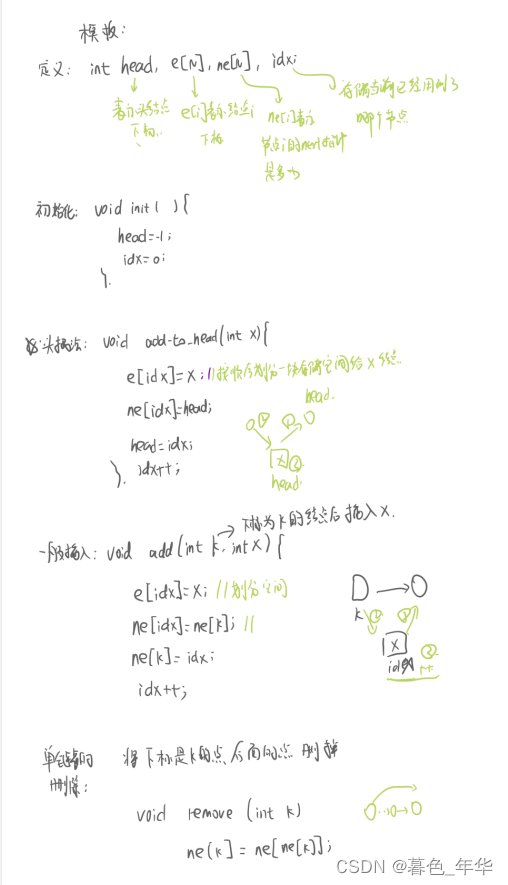 模板:
定义: int head, e[N], ne[N], idx;
表示头结点
下标
e[i]表示结点i
下标
ne[i]表示
节点i的next指针
是多少
存储当前已经用到了
哪个节点
初始化: void init( ){
head=-1;
idx=0;
}.
头插法: void add-to-head(int x){
e[idx]=x; //
ne[idx]=head;
head=idx;
idx++;
}.
head.
x
head.
下标为k的结点后插入x.
一般插入: void add(int k, int x){
e[idx]=x; //划分空间
ne[idx]=ne[k]; //
ne[k]=idx;
idx++;
k
x
将下标是k的点后面的点删掉
删除:
void remove (int k)
ne(k]=ne[ne[k]];
CSDN @暮色_年华